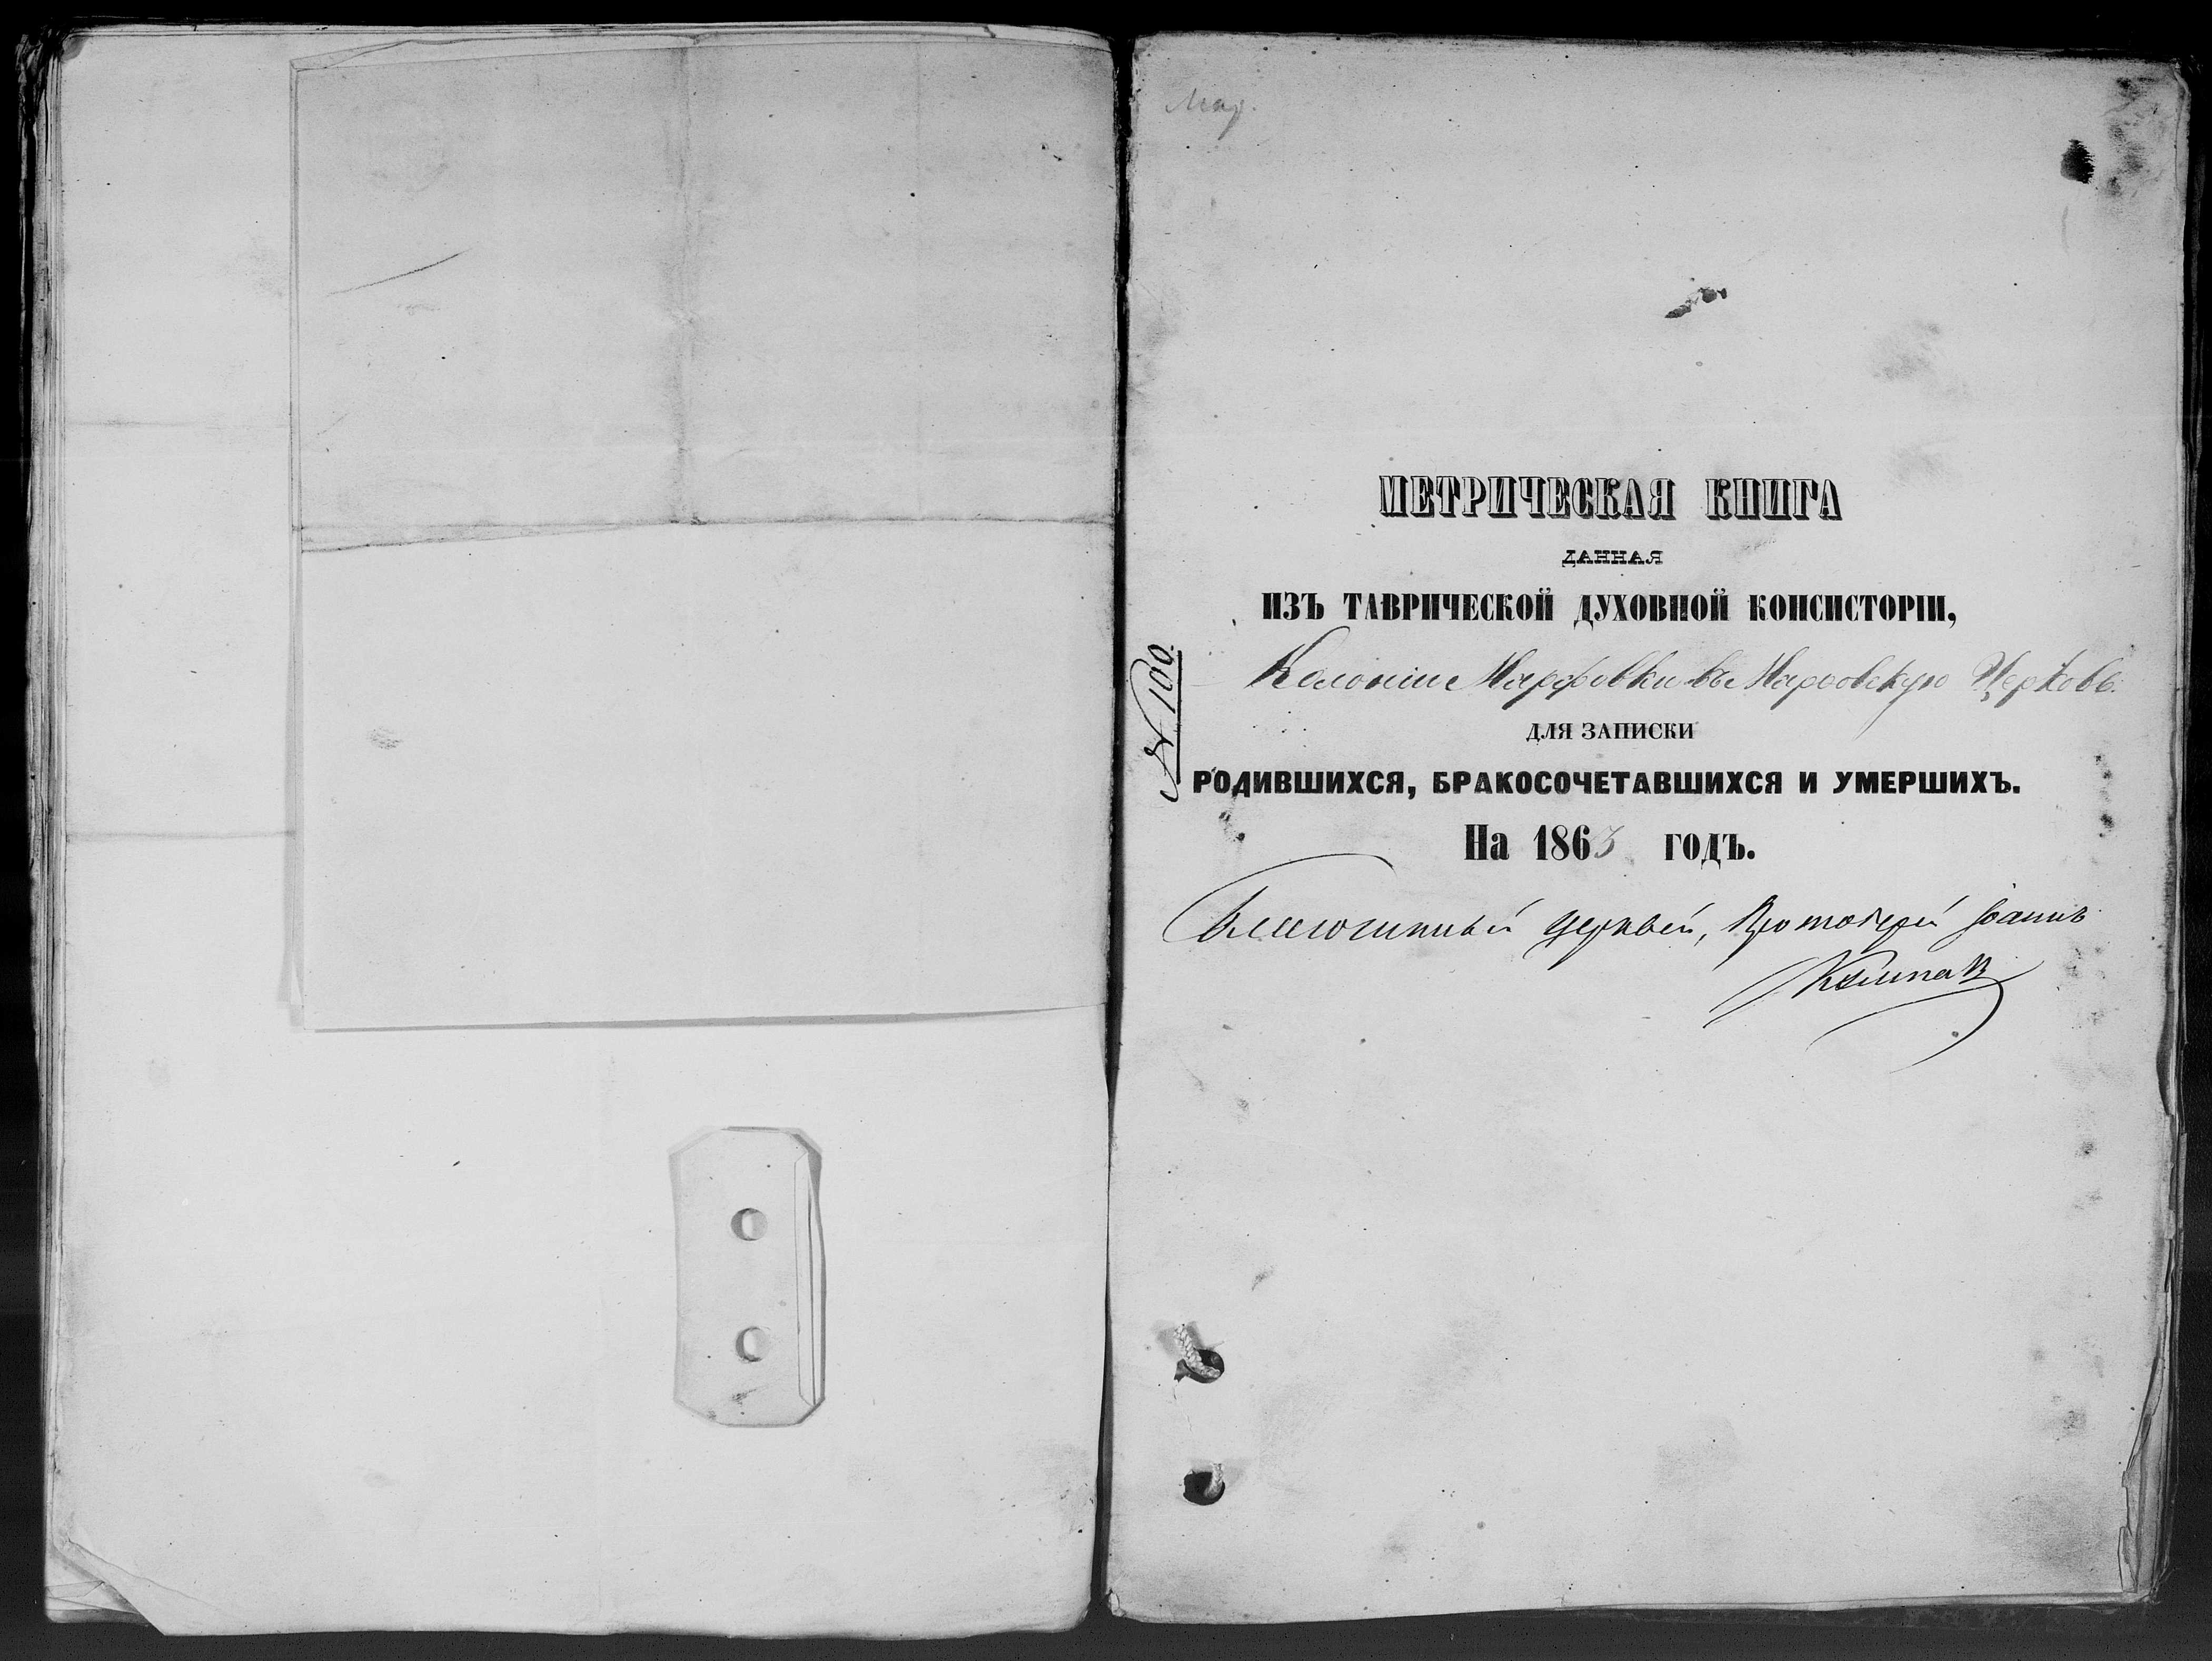 Мар.
МЕТРИЧЕСКАЯ КНИГА
ДАННАЯ
ИЗЪ ТАВРИЧЕСКОЙ ДУХОВНОЙ КОНСИСТОРІИ,
Колоніи Марфовки въ Марфовскую Церковь.
ДЛЯ ЗАПИСКИ
РОДИВШИХСЯ, БРАКОСОЧЕТАВШИХСЯ И УМЕРШИХЪ.
На 1863 ГОДЪ.
Благочинный церквей, Протоіерей Іоаннъ
№ 100.